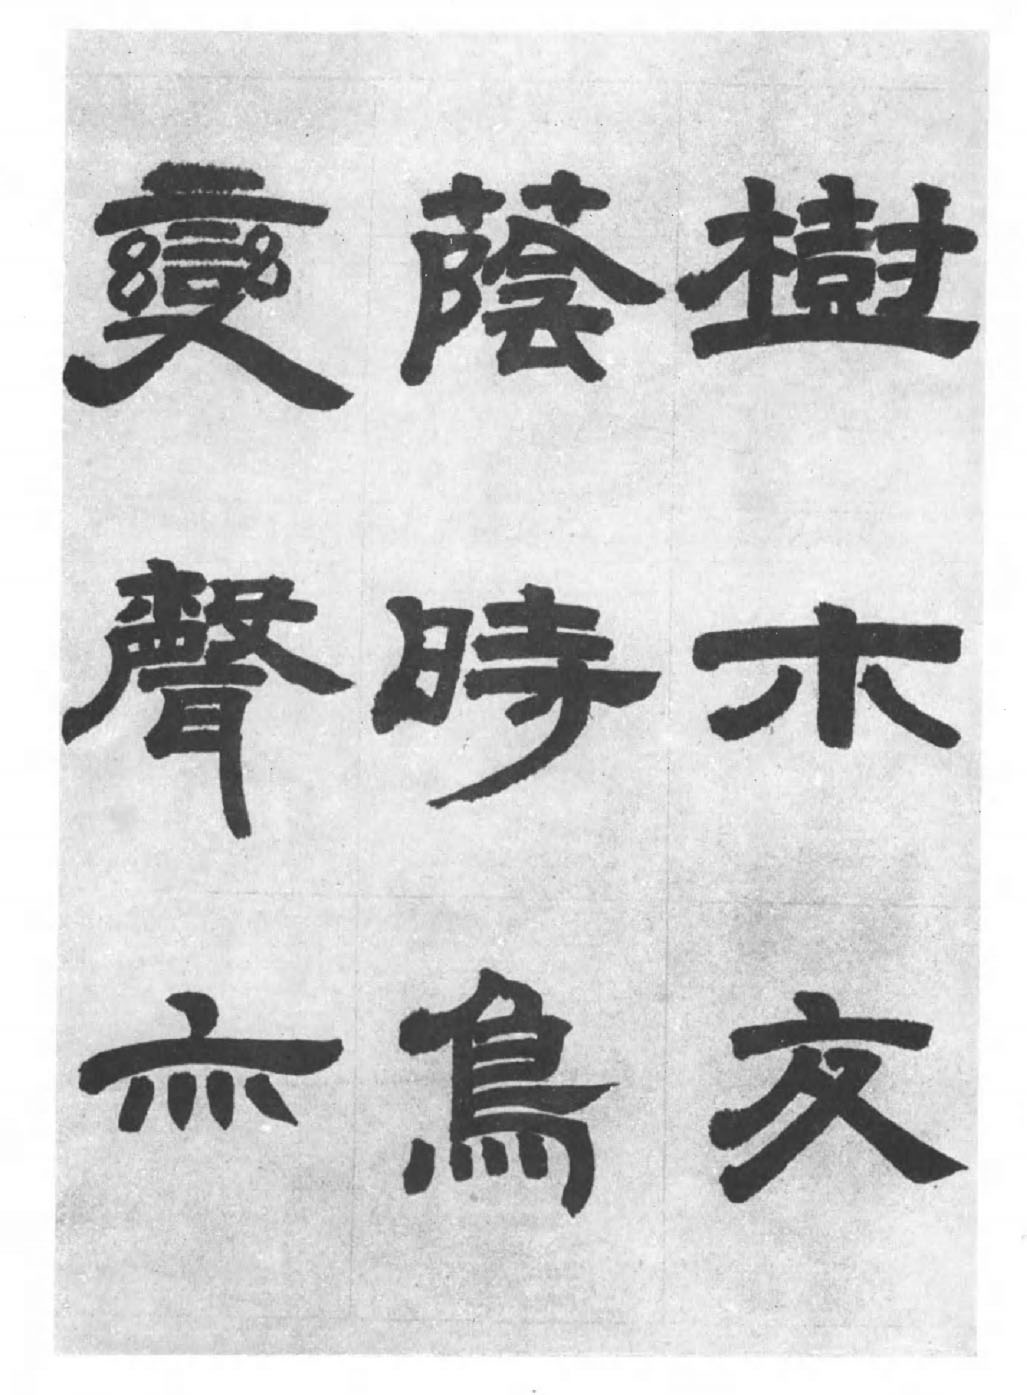 樹木交
蔭時鳥
變聲亦